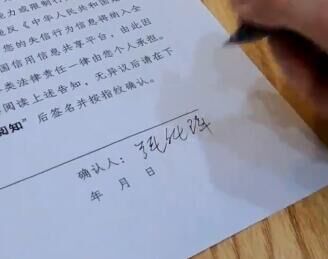 能力或限制行
违反《中华人民共和国
您的失信行为信息将纳入全
国信用信息共享平台，由此因
类法律责任一律由您个人承担。
阅读上述告知，无异议后请在下
阅知”后签名并按指纹确认。
确认人：张
年 月 日